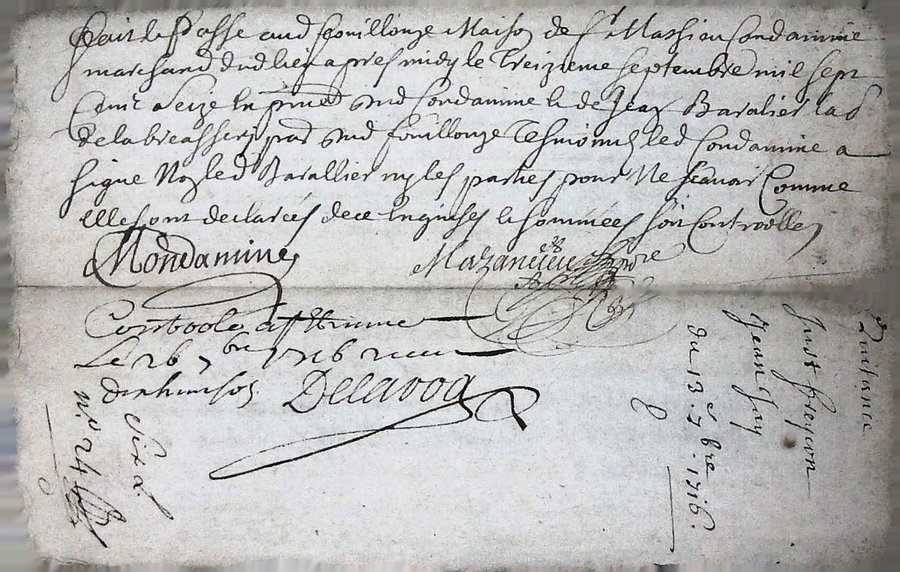 Fait et passé aud fouillouze Maison de St Mathieu Condamine
marchand dud lieu apres midy le Treizieme septembre mil sept
Cent Seize En pnce dud Condamine & de Jean Baralier lab
de la breassery par dud fouillouze Tesmoins led Condamine a
signe Non led Barallier ny les parties pour Ne scavoir Comme
Elles ont declarées de ce Enquises & sommées soit Controolle
MCondamine
Controole a St Etienne
Le 26 7bre 1716 receu
Delavoa
Six s
n° 24
Quitance
Just freycon
Jean Guy
du 13e 7bre 1716.